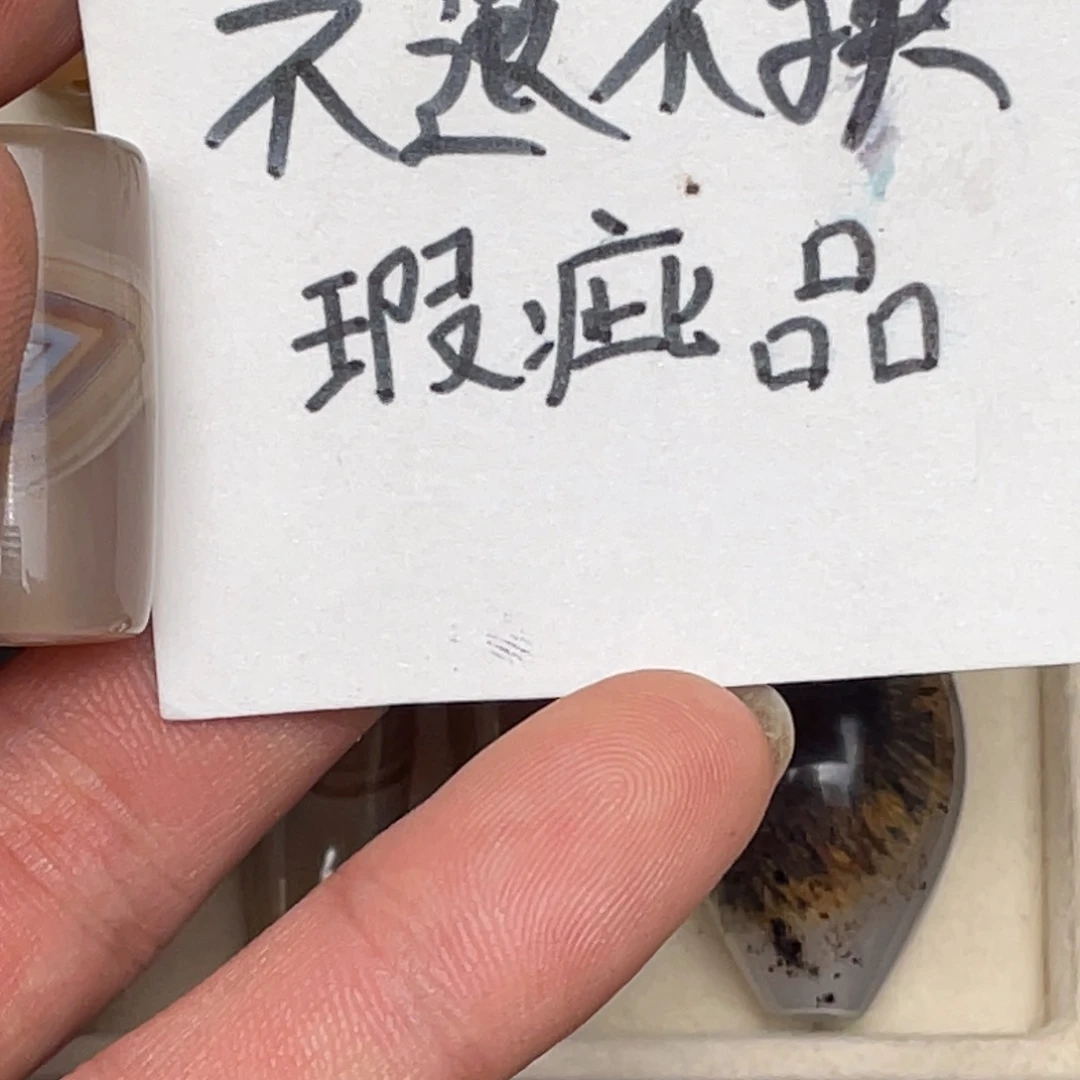 不退不换
瑕疵品